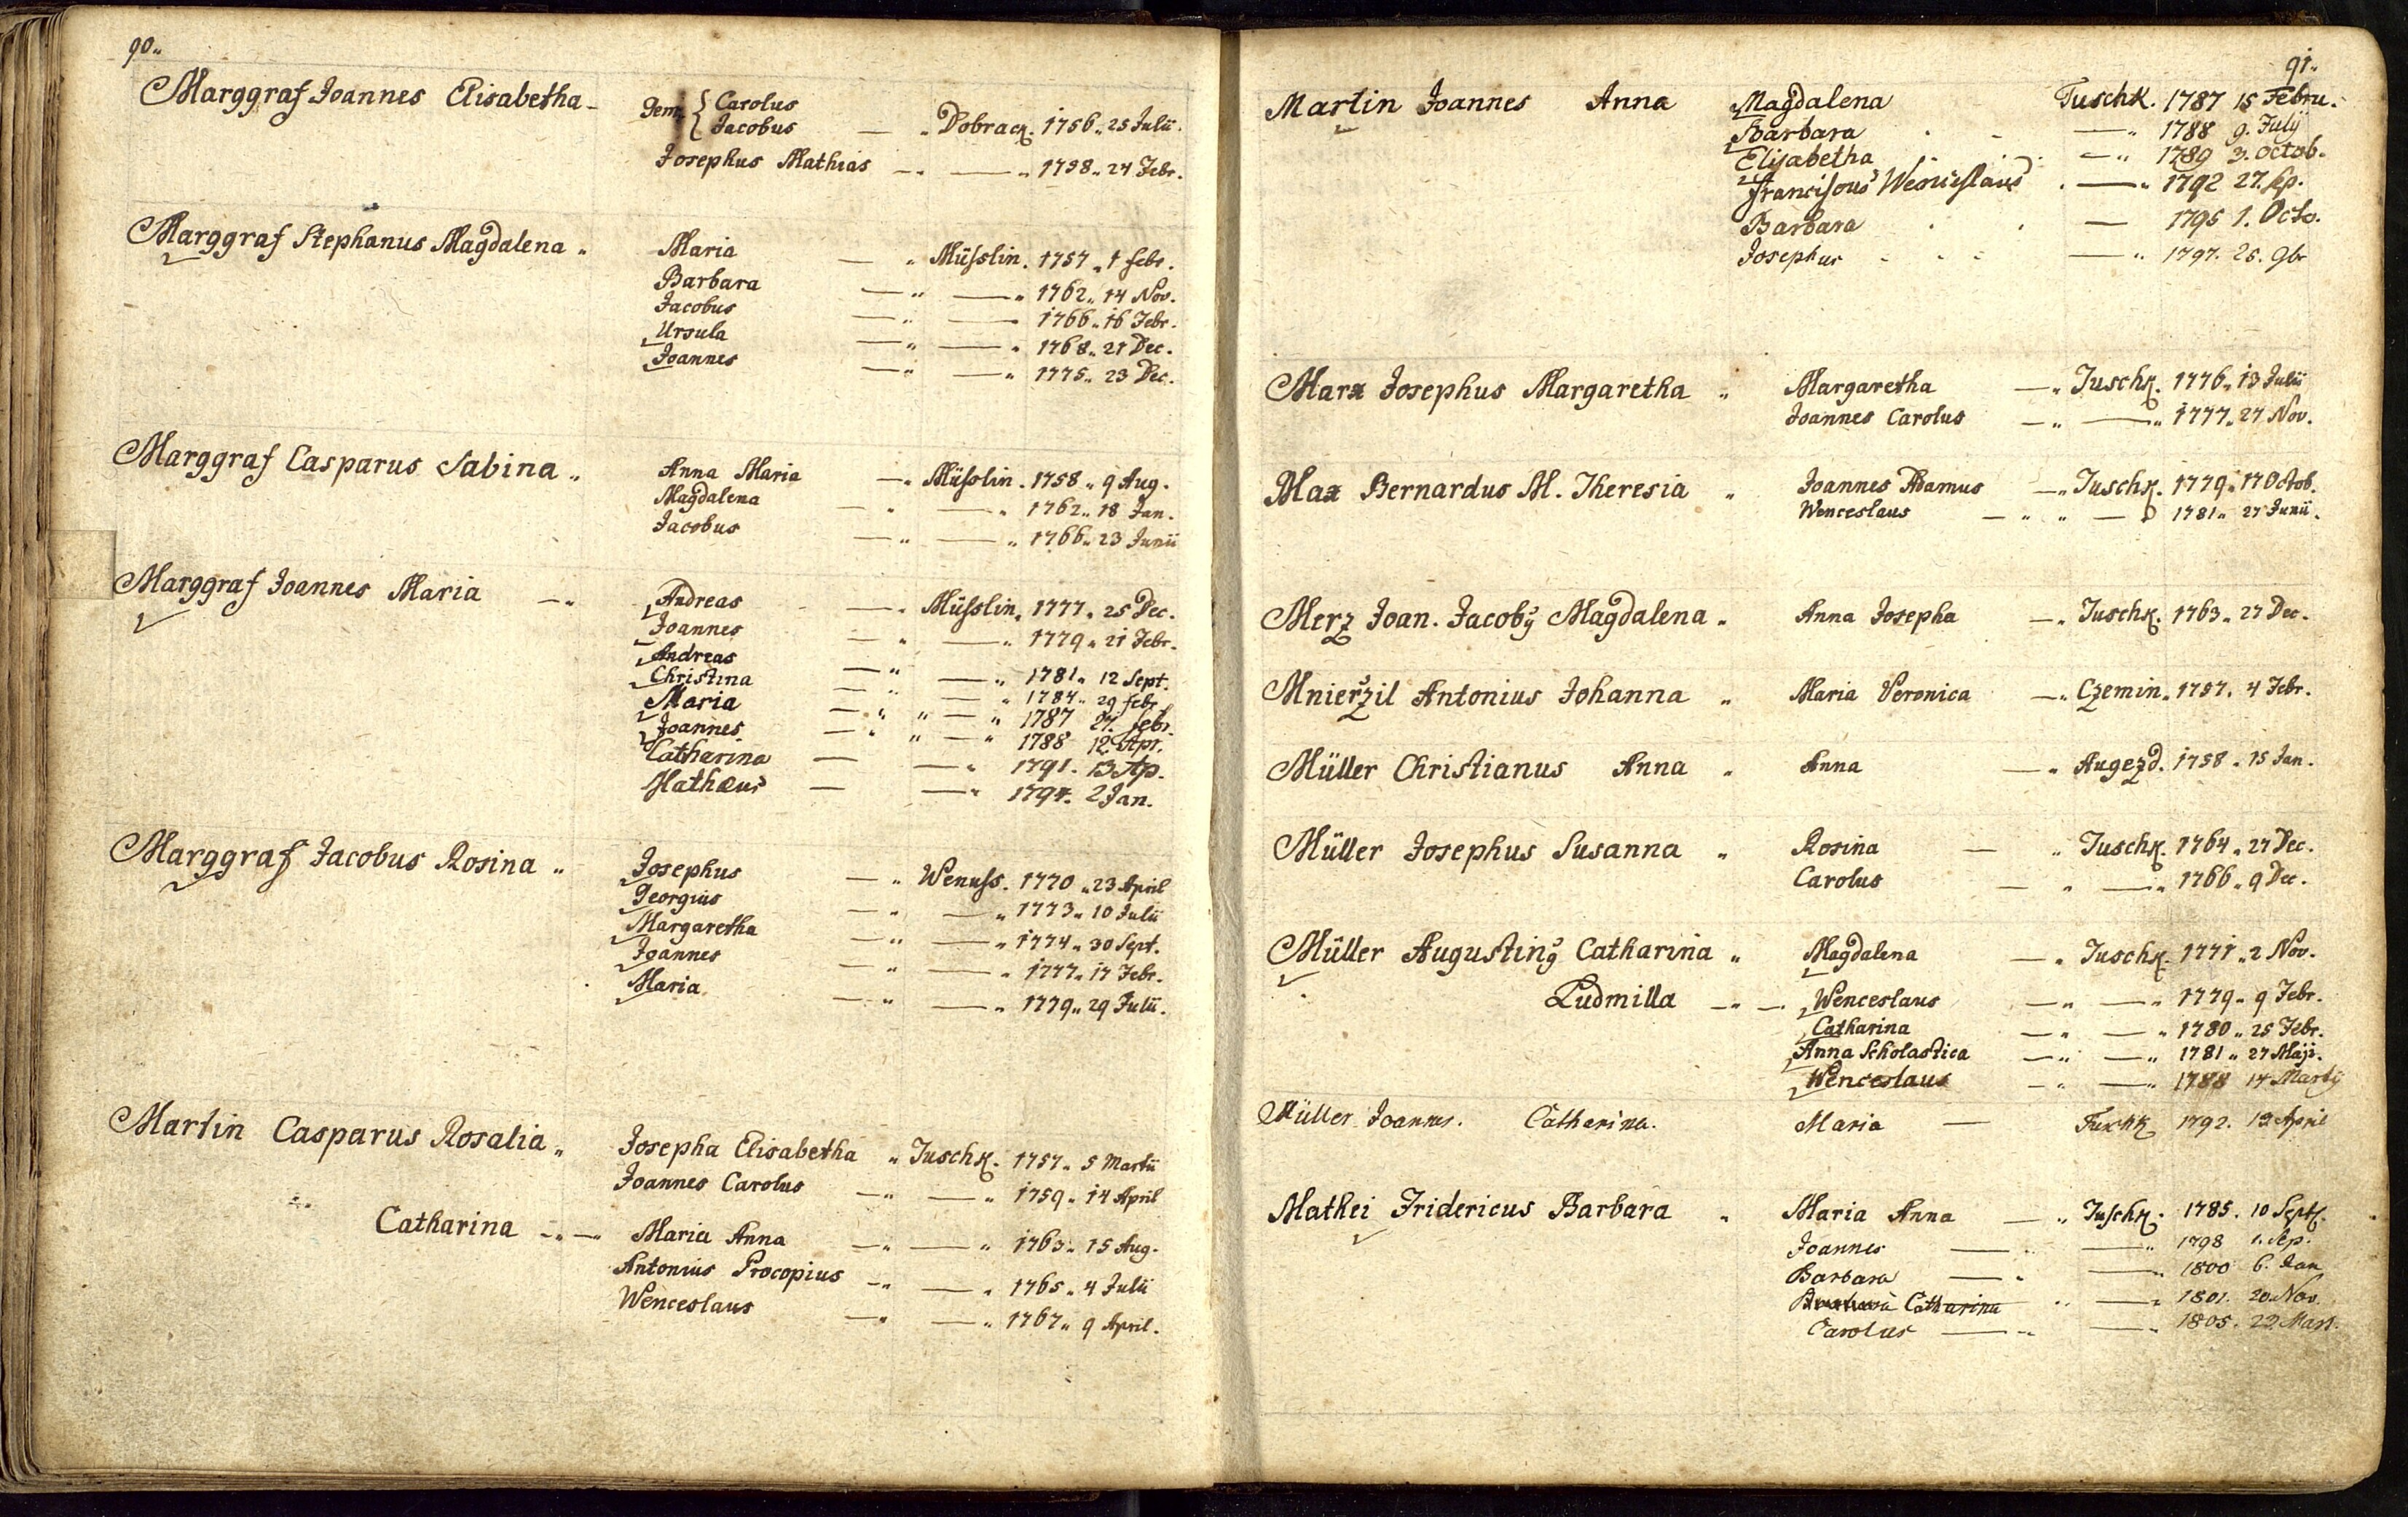 90.
Marggraf Joannes Elisabetha - Gem. { Carolus
Jacobus — „ Dobracz. 1756 „ 25 Julii.
Josephus Mathias — „ — „ 1758 „ 24 Febr.
Marggraf Stephanus Magdalena „ Maria — „ Müsslin. 1757 „ 1 febr.
Barbara — „ — „ 1762 „ 14 Nov.
Jacobus — „ — 1766 „ 16 Febr.
Ursula — „ — „ 1768 „ 21 Dec.
Joannes — „ — „ 1775 „ 23 Dec.
Marggraf Casparus Sabina „ Anna Maria — „ Müsslin. 1758 „ 9 Aug.
Magdalena — „ — „ 1762 „ 18 Jan.
Jacobus — „ — „ 1766 „ 23 Junii
Marggraf Joannes Maria — „ Andreas — „ Müsslin „ 1777 „ 25 Dec.
Joannes — „ — „ 1779 „ 21 Febr.
Andreas — „ — „ 1781 „ 12 Sept.
Christina — „ — „ 1784 „ 29 febr
Maria — „ „ — „ 1787 27. febr.
Joannes — „ „ — „ 1788 12. Apr.
Catharina — — „ 1791. 13 Ap.
Mathæus — — „ 1794. 2 Jan.
Marggraf Jacobus Rosina „ Josephus — „ Wenuss. 1770 „ 23 April
Georgius — „ — „ 1773 „ 10 Julii
Margaretha — „ — „ 1774 „ 30 Sept.
Joannes — „ — „ 1777 „ 17 Febr.
Maria — „ — „ 1779 „ 29 Julii.
Martin Casparus Rosalia „ Josepha Elisabetha „ Tuschk. 1757 „ 5 Martii
Joannes Carolus — „ — „ 1759 „ 14 April
Catharina — „ — Maria Anna — „ — „ 1763 „ 15 Aug.
Antonius Procopius — „ — „ 1765 „ 4 Julii
Wenceslaus — „ — „ 1767 „ 9 April.
91.
Martin Joannes Anna Magdalena Tuschk. 1787 15 Febru.
Barbara — „ 1788 9. Julÿ
Elisabetha — „ 1789 3. Octob.
Franciscus Wenceslaus — „ 1792 27. Sep.
Barbara — 1795 1. Octo.
Josephus — „ 1797. 26. 9br
Marx Josephus Margaretha „ Margaretha — „ Tuschk. 1776 „ 13 Julii
Joannes Carolus — „ — „ 1777 „ 27 Nov.
Max Bernardus M. Theresia „ Joannes Adamus — „ Tuschk. 1779 „ 17 Octob.
Wenceslaus — „ „ — „ 1781 „ 27 Junii.
Merz Joan. Jacobꝰ Magdalena „ Anna Josepha — „ Tuschk. 1763 „ 27 Dec.
Mnierzil Antonius Johanna „ Maria Veronica — „ Czemin „ 1757. 4 Febr.
Müller Christianus Anna „ Anna — „ Augezd. 1758 „ 15 Jan.
Müller Josephus Susanna „ Rosina — „ Tuschk. 1764 „ 27 Dec.
Carolus — „ — „ 1766 „ 9 Dec.
Müller Augustinꝰ Catharina „ Magdalena — „ Tuschk. 1771 „ 2 Nov.
Ludmilla — „ — Wenceslaus — „ — „ 1779 „ 9 Febr.
Catharina — „ — „ 1780 „ 25 Febr.
Anna Scholastica — „ — „ 1781 „ 27 Maji.
Wenceslaus — „ — „ 1788 14 Martÿ
Müller Joannes. Catharina. Maria — Tuschk 1792. 13 April
Mathei Fridericus Barbara „ Maria Anna — „ Tuschk. 1785. 10 Sept.
Joannes — „ — „ 1798 1. Sep.
Barbara — „ — „ 1800 6. Jan
Catharina „ — „ 1801. 20. Nov.
Carolus — „ — „ 1805. 22. Mart.